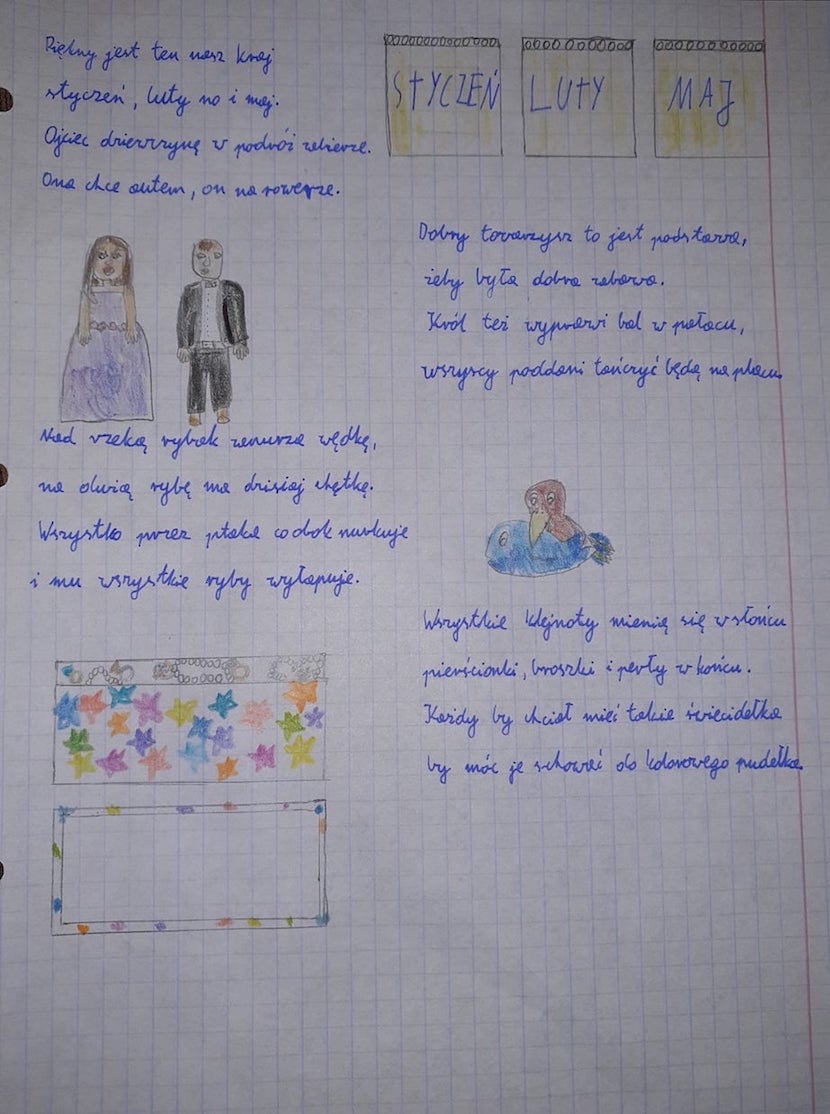 Piękny jest ten nasz kraj
styczeń, luty no i maj.
Ojciec dziewczynę w podróż zabierze.
Ona chce autem, on na rowerze.
STYCZEŃ
LUTY
MAJ
Dobry towarzysz to jest podstawa,
żeby była dobra zabawa.
Król też wyprawi bal w pałacu,
wszyscy poddani tańczyć będą na placu.
Nad rzeką rybak zanurza wędkę,
na dużą rybę ma dzisiaj chętkę.
Wszystko przez ptaka co obok nurkuje
i mu wszystkie ryby wyłapuje.
Wszystkie klejnoty mienią się w słońcu
pierścionki, broszki i perły w końcu.
Każdy by chciał mieć takie świecidełka
by móc je schować do kolorowego pudełka.